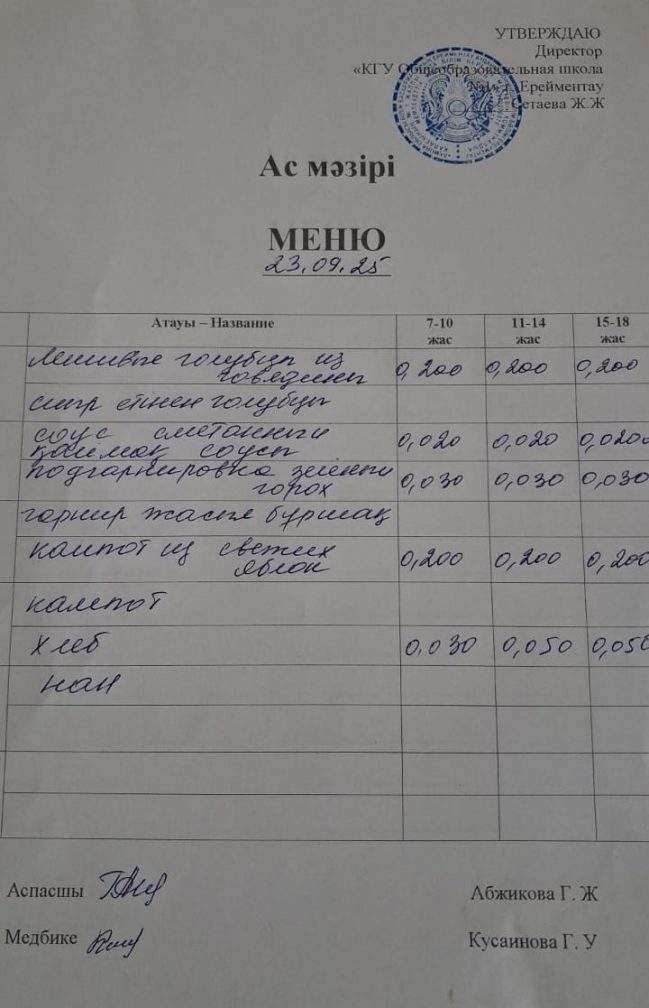 УТВЕРЖДАЮ
Директор
«КГУ Общеобразовательная школа
№1» г. Ерейментау
Сетаева Ж.Ж
Ас мәзірі
МЕНЮ
23.09.25
Атауы – Название 7-10 жас 11-14 жас 15-18 жас
Ленивые голубцы из
говядины 0,200 0,200 0,200
сиыр етінен голубцы
соус сметанный
қаймақ соусы 0,020 0,020 0,020
подгарнировка зелены
горох 0,030 0,030 0,030
гарнир жасыл бұршақ
компот из свежих
яблок 0,200 0,200 0,200
компот
хлеб 0,030 0,050 0,050
нан
Аспасшы Абжикова Г. Ж
Медбике Кусаинова Г. У